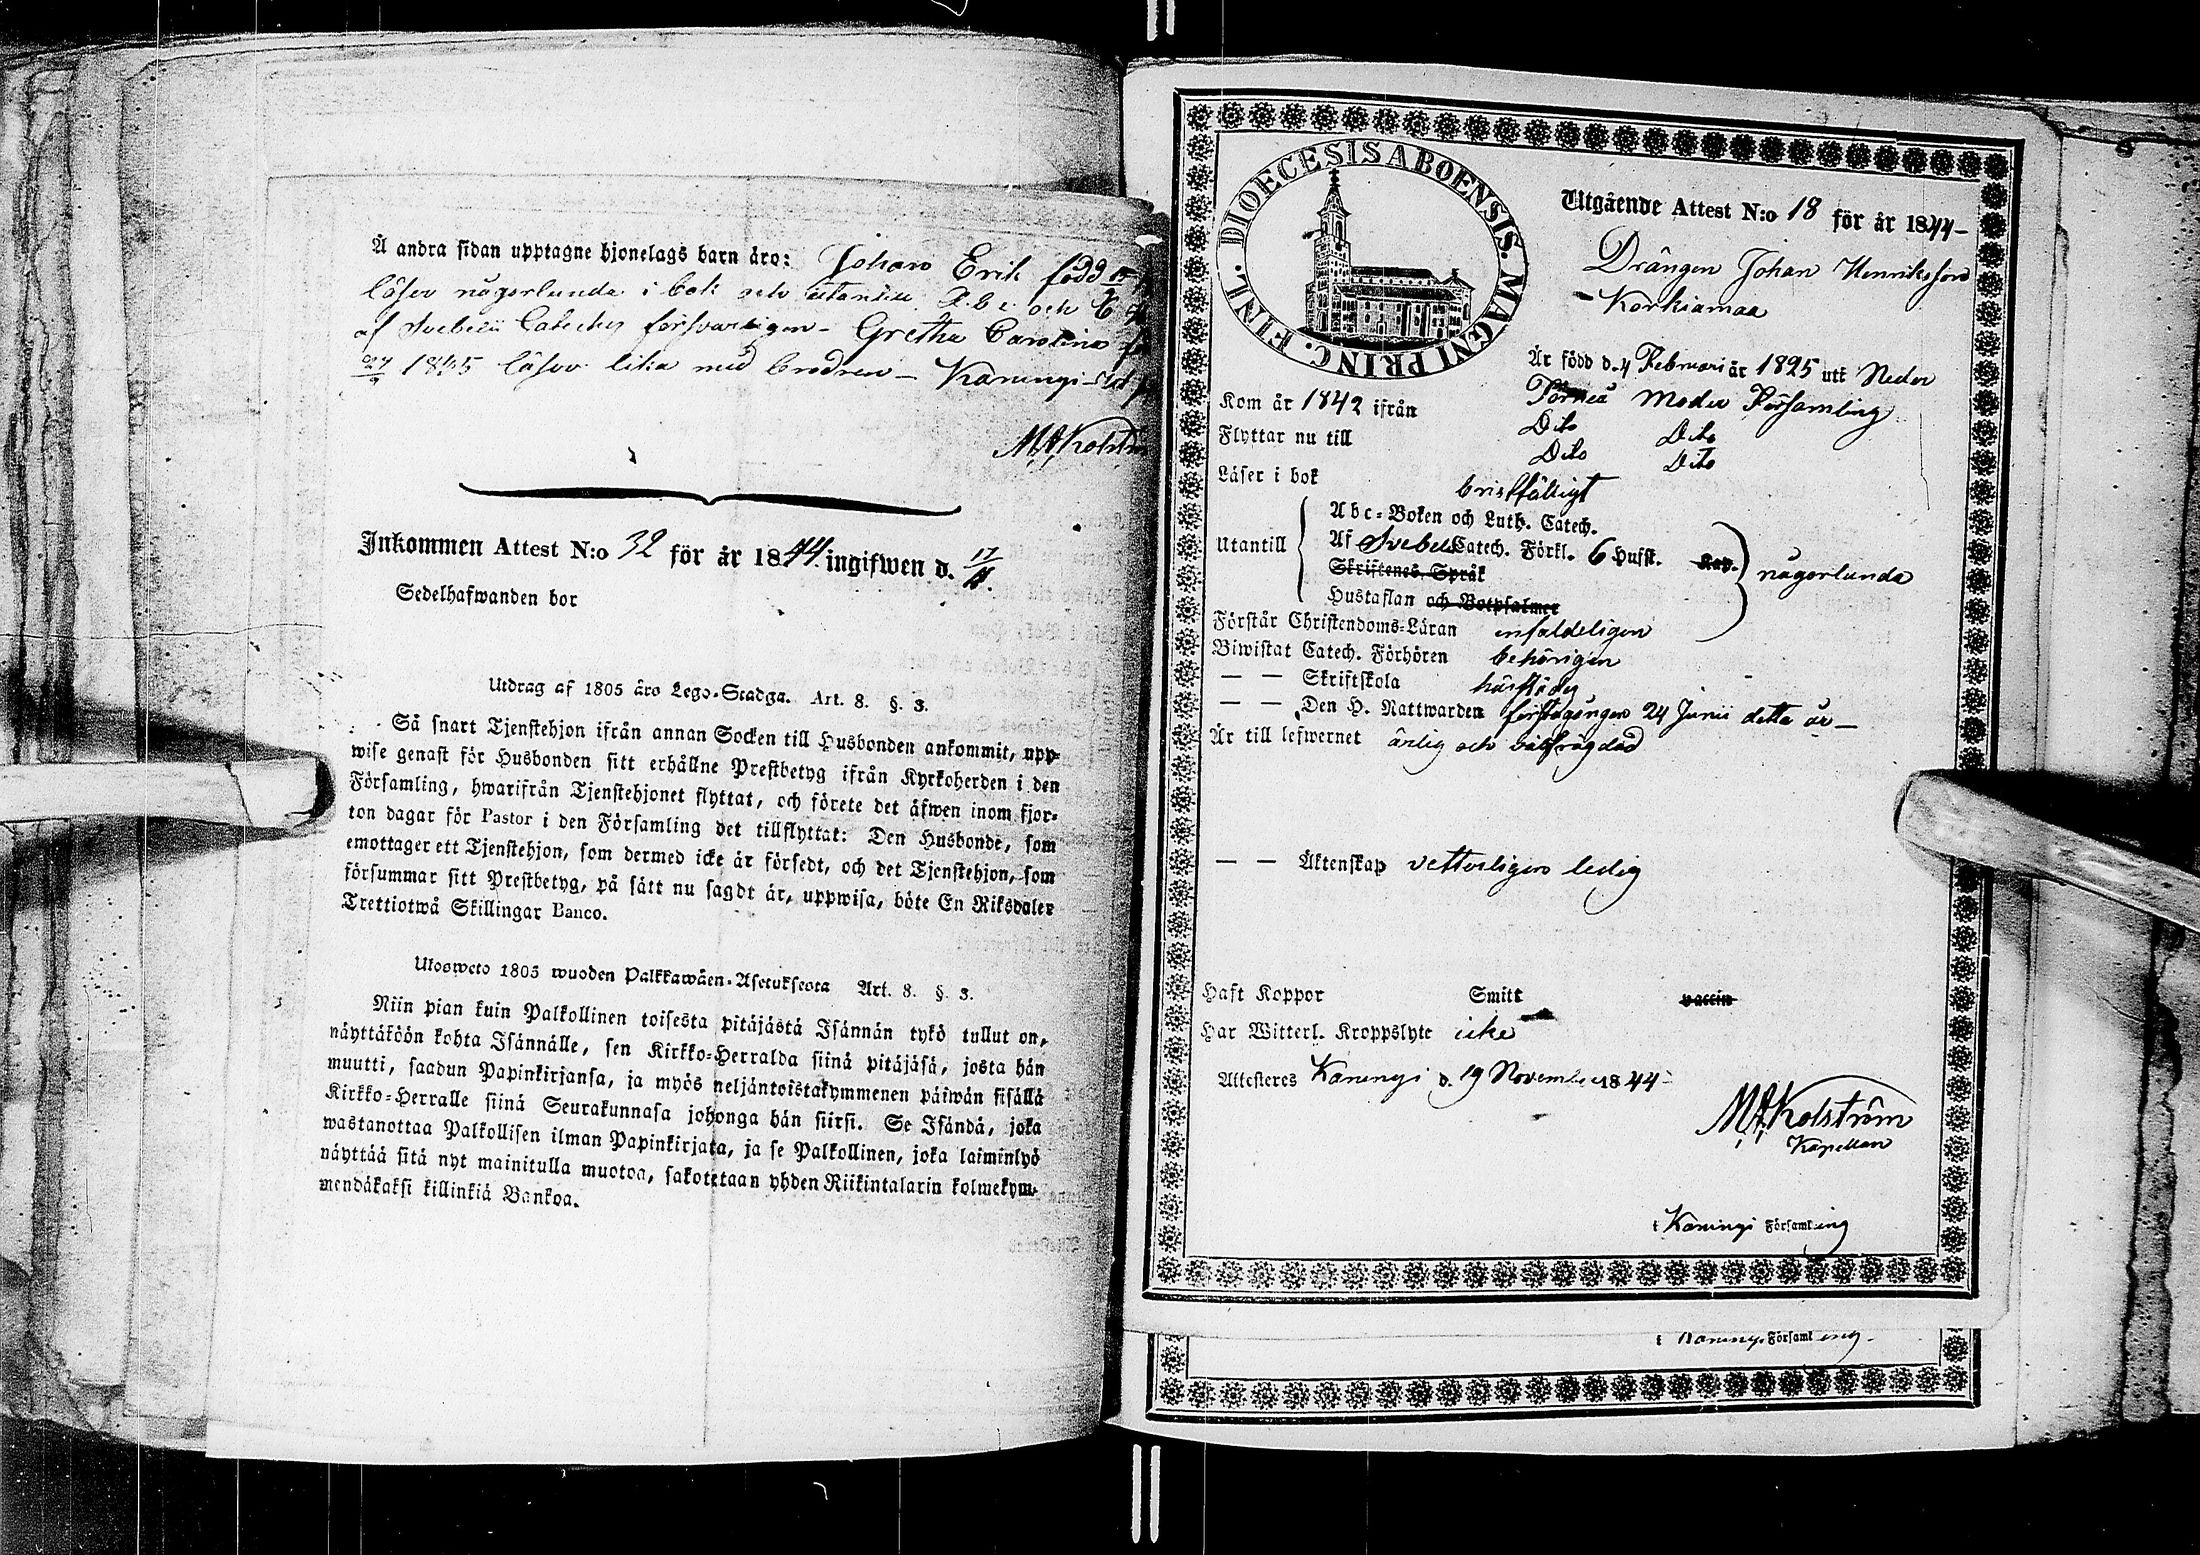 Å andra sidan upptagne hjonelags barn äro: Johan Erik född
läser någorlunda i bok och utantill A.b.c. och 6
af Svebelii Cateches försvarligen – Gretha Carolina
27/9 1835 läser lika med brodren – Karungi
M A Kolström
Inkommen Attest N:o 32 för år 1844 ingifwen d. 17/11.
Sedelhafwanden bor
Utdrag af 1805 års Lego-Stadga. Art. 8. §. 3.
Så snart Tjenstehjon ifrån annan Socken till Husbonden ankommit, upp-
wise genast för Husbonden sitt erhållne Prestbetyg ifrån Kyrkoherden i den
Församling, hwarifrån Tjenstehjonet flyttat, och förete det äfwen inom fjor-
ton dagar för Pastor i den Församling det tillflyttat: Den Husbonde, som
emottager ett Tjenstehjon, som dermed icke är försedt, och det Tjenstehjon, som
försummar sitt Prestbetyg, på sätt nu sagdt är, uppwisa, böte En Riksdaler
Trettiotwå Skillingar Banco.
Ulosweto 1805 wuoden Palkkawäen-Asetuksesta Art. 8. §. 3.
Niin pian kuin Palkollinen toisesta pitäjästä Isännän tykö tullut on,
näyttäköön kohta Isännälle, sen Kirkko-Herralda siinä pitäjäsä, josta hän
muutti, saadun Papinkirjansa, ja myös neljäntoistakymmenen päiwän sisällä
Kirkko-Herralle siinä Seurakunnasa johonga hän siirsi. Se Isändä, joka
wastanottaa Palkollisen ilman Papinkirjata, ja se Palkollinen, joka laiminlyö
näyttää sitä nyt mainitulla muotoa, sakotetaan yhden Riikintalarin kolmekym-
mendäkaksi killinkiä Bankoa.
DIOECESIS ABOENSIS. MAGNI PRINC. FINL.
Utgående Attest N:o 18 för år 1844 –
Drängen Johan Henriksson
– Korkiamaa
Är född d. 4 Februari år 1825 uti Neder
Torneå Moder Församling
Kom år 1842 ifrån Dito Dito
Flyttar nu till Dito Dito
Läser i bok bristfälligt
Abc-Boken och Luth. Catech.
Utantill Af Svebel. Catech. Förkl. 6 Hufst. Kap. någorlunda
Skriftenes Språk
Hustaflan och Botpsalmer
Förstår Christendoms-Läran enfaldeligen
Biwistat Catech. Förhören behörigen
— — Skriftskola härstädes
— — Den H. Nattwarden förstagången 24 Junii detta år –
Är till lefwernet ärlig och välfrägdad
— — Äktenskap vetterligen ledig
Haft Koppor Smitt vaccin
Har Witterl. Kroppslyte icke
Attesteres Karungi d. 19 November 1844 –
M A Kolström
Kapellan
i Karungi Församling
i Karungi Församling –